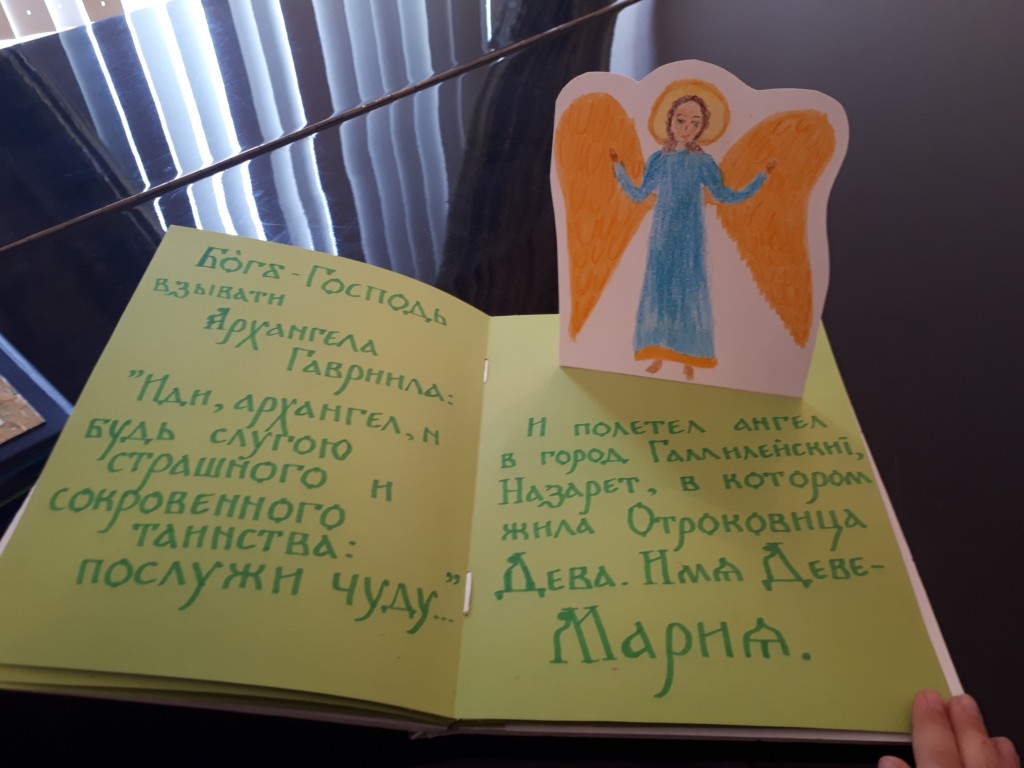 Бо́гъ-Господь
взывати
Архангела
Гавриила:
"Иди, архангел, и
будь слугою
страшного и
сокровенного
таинства:
послужи чуду..."
И полетел ангел
в город Галлилейский,
Назарет, в котором
жила Отроковица
Дева. Имѧ Деве-
Мариѧ.